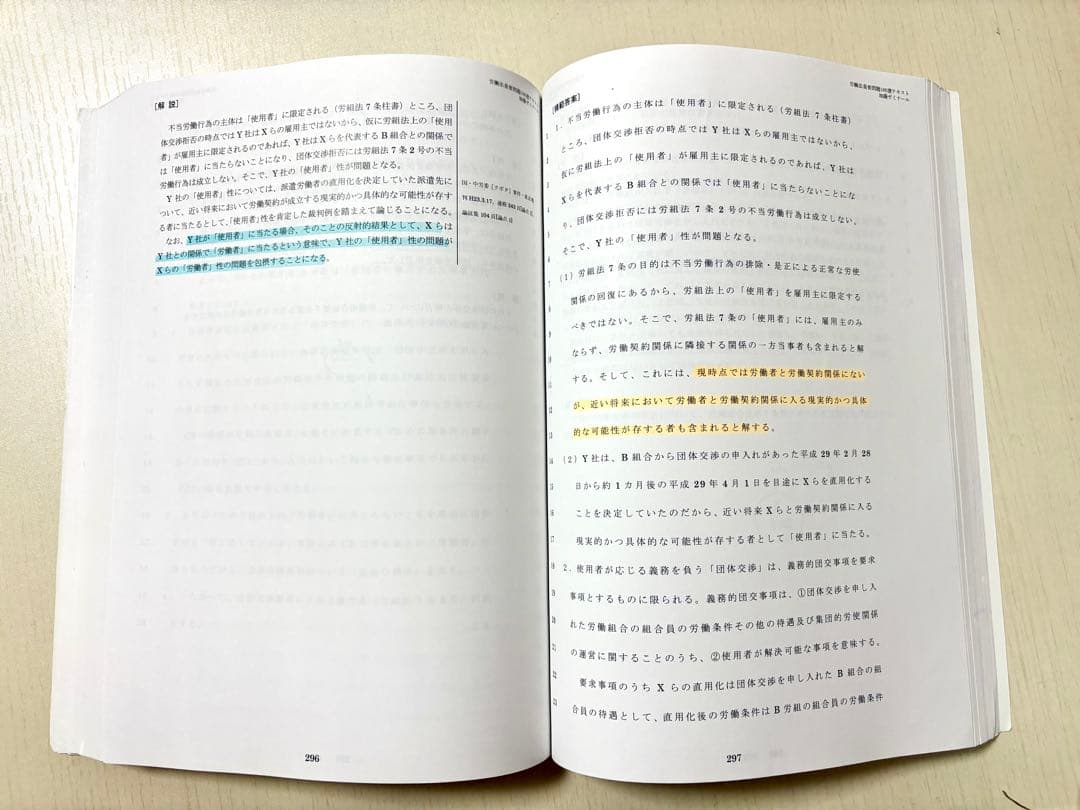 [解 説]
不当労働行為の主体は「使用者」に限定される(労組法7条柱書)ところ、団
体交渉拒否の時点ではY社はXらの雇用主ではないから、仮に労組法上の「使用
者」が雇用主に限定されるのであれば、Y社はXらを代表するB組合との関係で
は「使用者」に当たらないことになり、団体交渉拒否には労組法7条2号の不当
労働行為は成立しない。そこで、Y社の「使用者」性が問題となる。
Y社の「使用者」性については、派遣労働者の直用化を決定していた派遣先に
ついて、近い将来において雇用関係が成立する現実的かつ具体的な可能性が存す
る者に当たるとして、「使用者」性を肯定した裁判例を踏まえて論じることになる。
なお、Y社が「使用者」に当たる場合、そのことの反射的結果として、Xらは
Y社との関係で「労働者」に当たるという意味で、Y社の「使用者」性の問題が
Xらの「労働者」性の問題を包摂することになる。
国・中労委(クボタ)事件・東京地
判H23.3.17、
論証集104頁[論点1]
296
加藤ゼミナール
[模範答案]
1.不当労働行為の主体は「使用者」に限定される(労組法7条柱書)
ところ、団体交渉拒否の時点ではY社はXらの雇用主ではないから、
仮に労組法上の「使用者」が雇用主に限定されるのであれば、Y社は
Xらを代表するB組合との関係では「使用者」に当たらないことにな
り、団体交渉拒否には労組法7条2号の不当労働行為は成立しない。
そこで、Y社の「使用者」性が問題となる。
(1)労組法7条の目的は不当労働行為の排除・是正による正常な労使
関係の回復にあるから、労組法上の「使用者」を雇用主に限定する
べきではない。そこで、労組法7条の「使用者」には、雇用主のみ
ならず、労働契約関係に隣接する関係の一方当事者も含まれると解
する。そして、これには、現時点では労働者と労働契約関係にない
が、近い将来において労働者と労働契約関係に入る現実的かつ具体
的な可能性が存する者も含まれると解する。
(2)Y社は、B組合から団体交渉の申入れがあった平成29年2月28
日から約1カ月後の平成29年4月1日を目途にXらを直用化する
ことを決定していたのだから、近い将来Xらと労働契約関係に入る
現実的かつ具体的な可能性が存する者として「使用者」に当たる。
2.使用者が応じる義務を負う「団体交渉」は、義務的団交事項を要求
事項とするものに限られる。義務的団交事項は、①団体交渉を申し入
れた労働組合の組合員の労働条件その他の待遇及び集団的労使関係
の運営に関することのうち、②使用者が解決可能な事項を意味する。
要求事項のうちXらの直用化は団体交渉を申し入れたB組合の組
合員の待遇として、直用化後の労働条件はB労組の組合員の労働条件
297